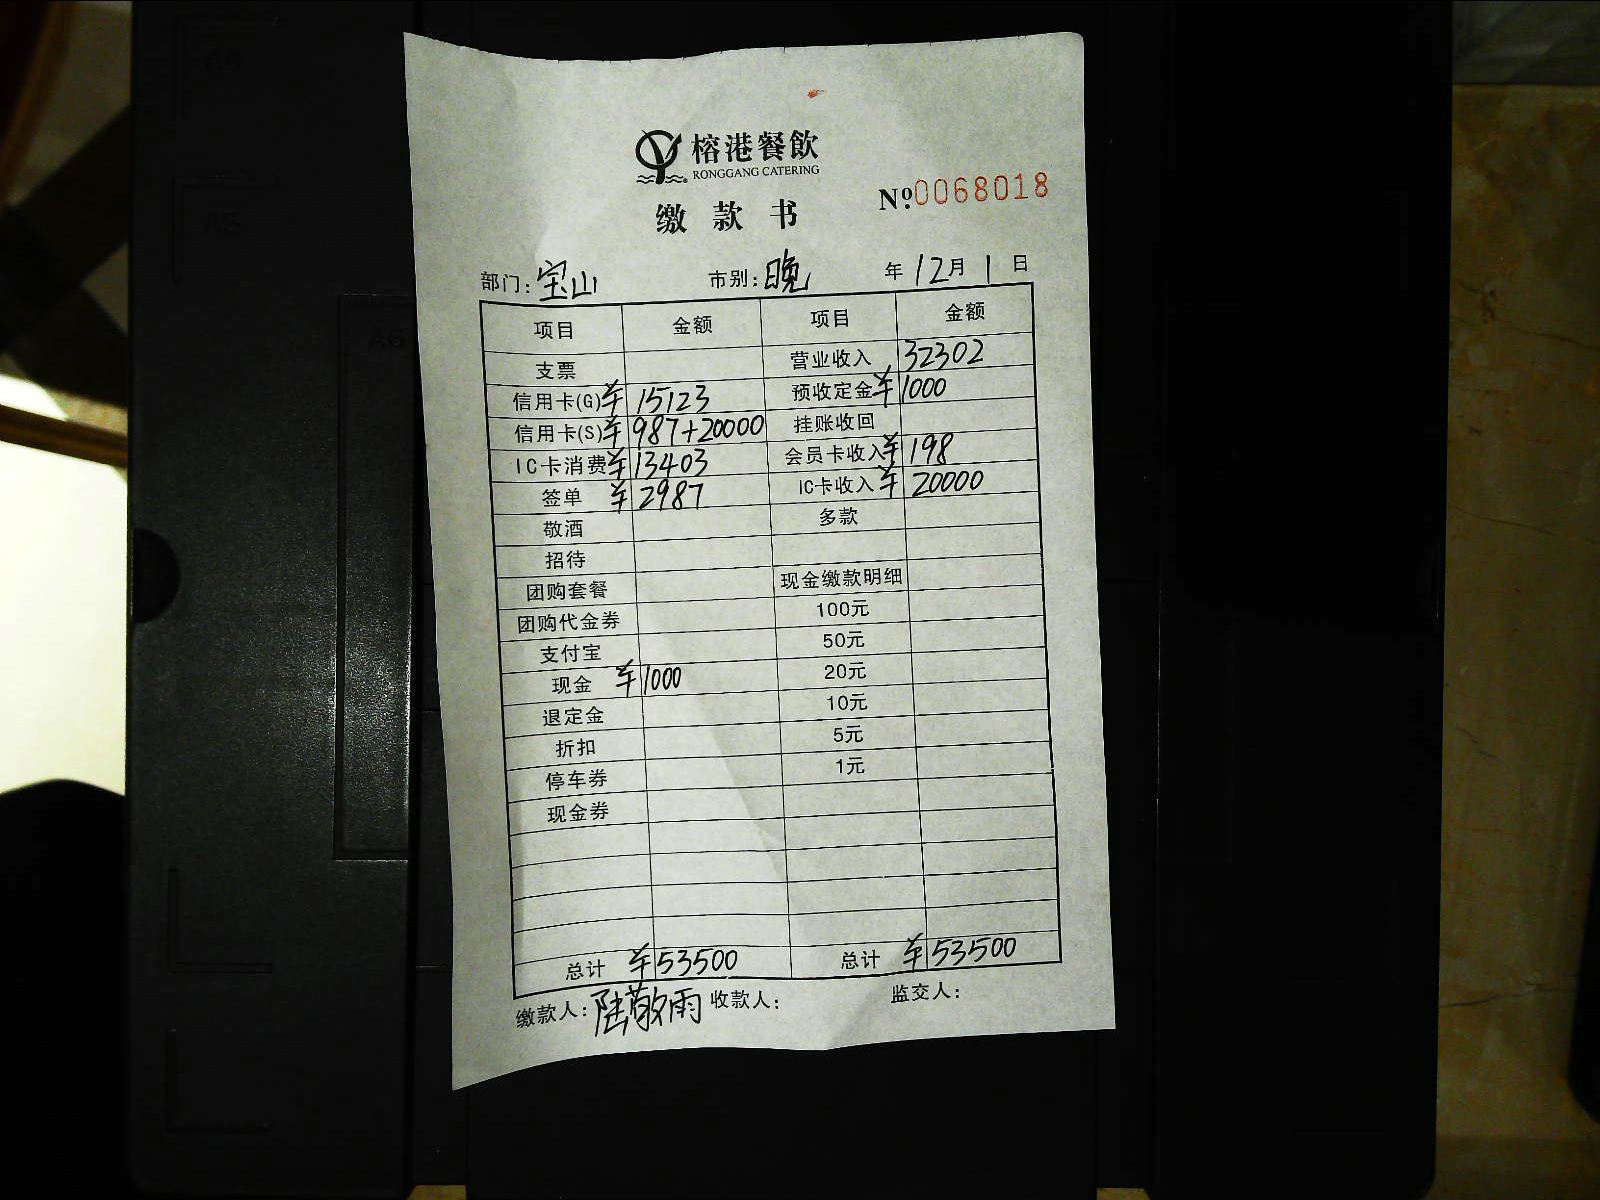 榕港餐飲
RONGGANG CATERING
№0068018
缴款书
部门：宝山 市别：晚 年12月1日
项目 金额 项目 金额
支票 营业收入 32302
信用卡(G) ¥15123 预收定金 ¥1000
信用卡(S) ¥987+20000 挂账收回
IC卡消费 ¥13403 会员卡收入 ¥198
签单 ¥2987 IC卡收入 ¥20000
敬酒 多款
招待
团购套餐 现金缴款明细
团购代金券 100元
支付宝 50元
现金 ¥1000 20元
退定金 10元
折扣 5元
停车券 1元
现金券
总计 ¥53500 总计 ¥53500
缴款人：陆敬雨 收款人： 监交人：
A4
A5
A6